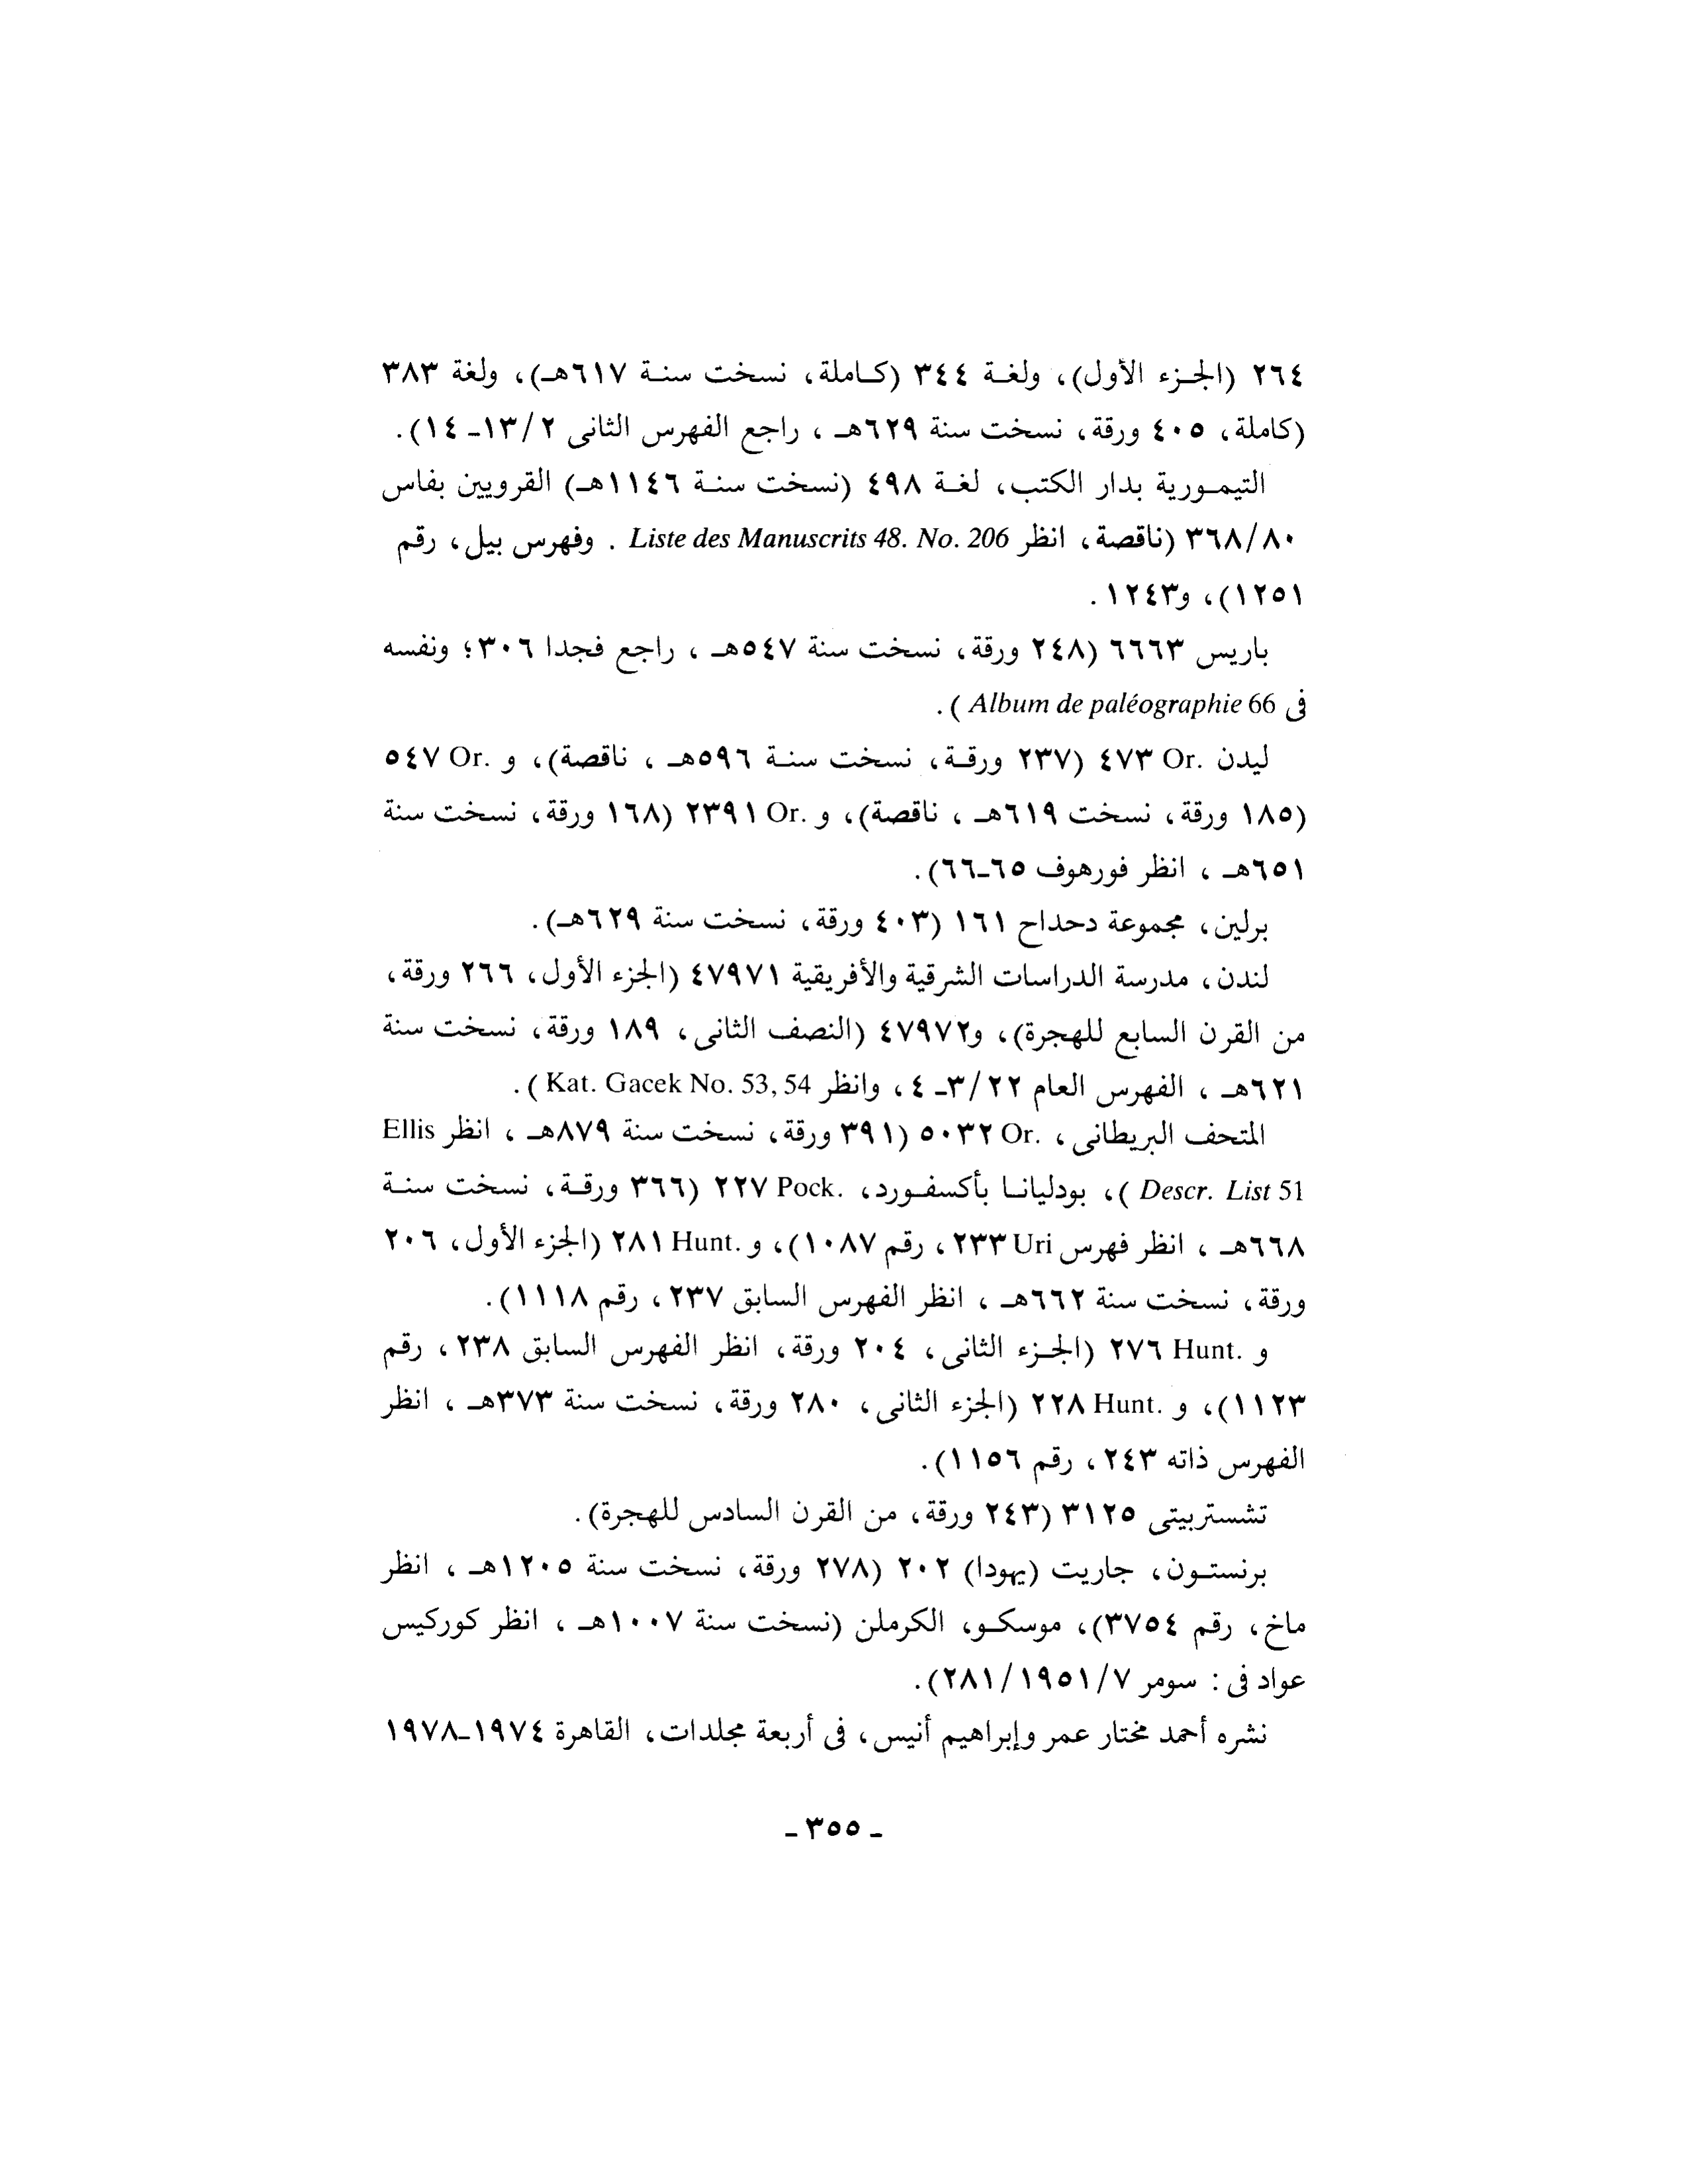 ٢٦٤ (الجزء الأول)، ولغة ٣٤٤ (كاملة، نسخت سنة ٦١٧هـ)، ولغة ٣٨٣
(كاملة، ٤٠٥ ورقة، نسخت سنة ٦٢٩هـ ، راجع الفهرس الثانى ٢/ ١٣ـ ١٤).
التيمورية بدار الكتب، لغة ٤٩٨ (نسخت سنة ١١٤٦هـ) القرويين بفاس
٣٦٨/٨٠ (ناقصة، انظر Liste des Manuscrits 48. No. 206 . وفهرس بيل، رقم
١٢٥١)، و١٢٤٣.
باريس ٦٦٦٣ (٢٤٨ ورقة، نسخت سنة ٥٤٧هـ ، راجع فجدا ٣٠٦؛ ونفسه
فى Album de paléographie 66 ).
ليدن Or. ٤٧٣ (٢٣٧ ورقة، نسخت سنة ٥٩٦هـ ، ناقصة)، و Or. ٥٤٧
(١٨٥ ورقة، نسخت ٦١٩هـ ، ناقصة)، و Or. ٢٣٩١ (١٦٨ ورقة، نسخت سنة
٦٥١هـ ، انظر فورهوف ٦٥ـ٦٦).
برلين، مجموعة دحداح ١٦١ (٤٠٣ ورقة، نسخت سنة ٦٢٩هـ).
لندن، مدرسة الدراسات الشرقية والأفريقية ٤٧٩٧١ (الجزء الأول، ٢٦٦ ورقة،
من القرن السابع للهجرة)، و٤٧٩٧٢ (النصف الثانى، ١٨٩ ورقة، نسخت سنة
٦٢١هـ ، الفهرس العام ٢٢/ ٣ـ ٤، وانظر Kat. Gacek No. 53, 54 ).
المتحف البريطانى، Or. ٥٠٣٢ (٣٩١ ورقة، نسخت سنة ٨٧٩هـ ، انظر Ellis
Descr. List 51 )، بودليانا بأكسفورد، Pock. ٢٢٧ (٣٦٦ ورقة، نسخت سنة
٦٦٨هـ ، انظر فهرس Uri ٢٣٣، رقم ١٠٨٧)، و Hunt. ٢٨١ (الجزء الأول، ٢٠٦
ورقة، نسخت سنة ٦٦٢هـ ، انظر الفهرس السابق ٢٣٧، رقم ١١١٨).
و Hunt. ٢٧٦ (الجزء الثانى، ٢٠٤ ورقة، انظر الفهرس السابق ٢٣٨، رقم
١١٢٣)، و Hunt. ٢٢٨ (الجزء الثانى، ٢٨٠ ورقة، نسخت سنة ٣٧٣هـ ، انظر
الفهرس ذاته ٢٤٣، رقم ١١٥٦).
تشستربيتى ٣١٢٥ (٢٤٣ ورقة، من القرن السادس للهجرة).
برنستون، جاريت (يهودا) ٢٠٢ (٢٧٨ ورقة، نسخت سنة ١٢٠٥هـ ، انظر
ماخ، رقم ٣٧٥٤)، موسكو، الكرملن (نسخت سنة ١٠٠٧هـ ، انظر كوركيس
عواد فى : سومر ٧/ ١٩٥١/ ٢٨١).
نشره أحمد مختار عمر وإبراهيم أنيس، فى أربعة مجلدات، القاهرة ١٩٧٤ـ١٩٧٨
ـ ٣٥٥ ـ